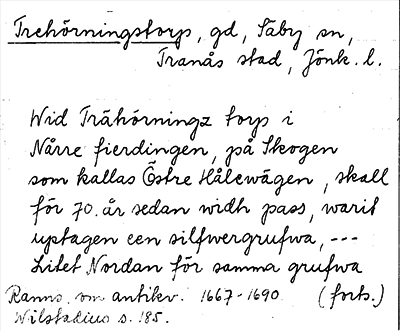 Trehörningstorp, gd, Säby sn,
Tranås stad, Jönk. l.
Wid Trähörningz torp i
Nårre fierdingen, på Skogen
som kallas Östre Hålewägen, skall
för 70. år sedan widh pass, warit
uptagen een silfwergrufwa, ---
Litet Nordan för samma grufwa
Ranns. om antikv. 1667-1690 (forts.)
Wilstadius s. 185.